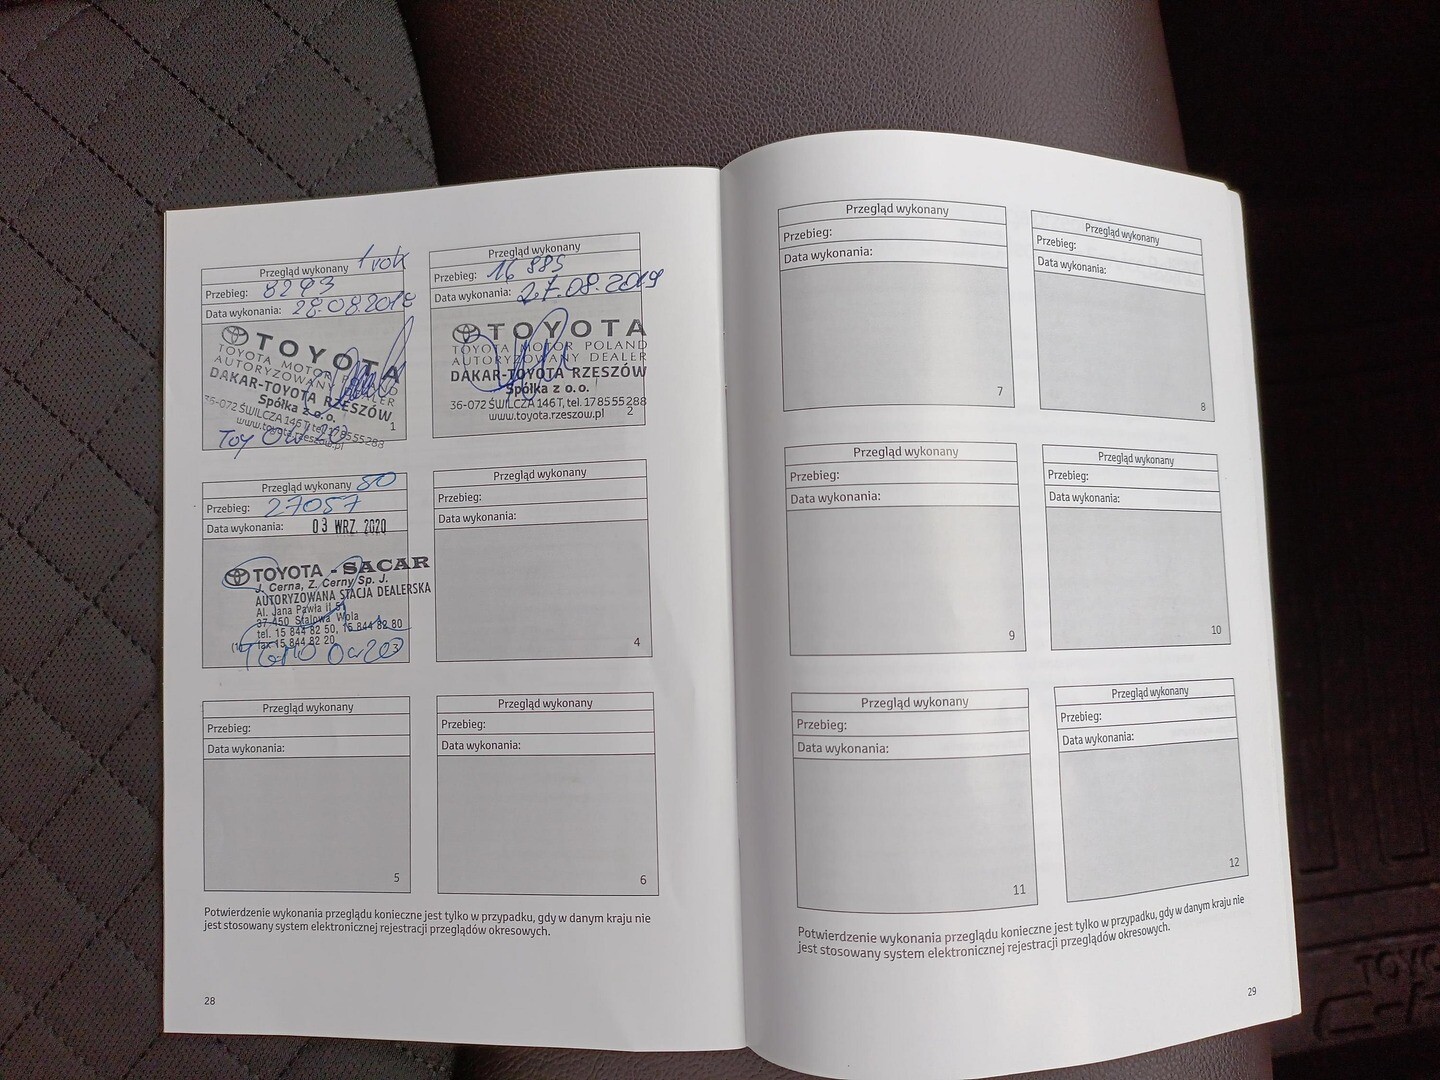 Przegląd wykonany 1 rok
Przebieg: 8293
Data wykonania: 28.08.2018
TOYOTA
TOYOTA MOTOR POLAND
AUTORYZOWANY DEALER
DAKAR-TOYOTA RZESZÓW
Spółka z o.o.
36-072 ŚWILCZA 146T, tel. 178555288
www.toyota.rzeszow.pl
1
Przegląd wykonany
Przebieg: 16 885
Data wykonania: 27.08.2019
TOYOTA
TOYOTA MOTOR POLAND
AUTORYZOWANY DEALER
DAKAR-TOYOTA RZESZÓW
Spółka z o.o.
36-072 ŚWILCZA 146T, tel. 178555288
www.toyota.rzeszow.pl
2
Przegląd wykonany
Przebieg: 27057
Data wykonania: 03 WRZ. 2020
TOYOTA - SACAR
J. Cerna, Z. Cerny Sp. J.
AUTORYZOWANA STACJA DEALERSKA
Al. Jana Pawła II 51
37-450 Stalowa Wola
tel. 15 844 82 50, 15 844 82 80
fax 15 844 82 20
3
Przegląd wykonany
Przebieg:
Data wykonania:
4
Przegląd wykonany
Przebieg:
Data wykonania:
5
Przegląd wykonany
Przebieg:
Data wykonania:
6
Potwierdzenie wykonania przeglądu konieczne jest tylko w przypadku, gdy w danym kraju nie
jest stosowany system elektronicznej rejestracji przeglądów okresowych.
28
Przegląd wykonany
Przebieg:
Data wykonania:
7
Przegląd wykonany
Przebieg:
Data wykonania:
8
Przegląd wykonany
Przebieg:
Data wykonania:
9
Przegląd wykonany
Przebieg:
Data wykonania:
10
Przegląd wykonany
Przebieg:
Data wykonania:
11
Przegląd wykonany
Przebieg:
Data wykonania:
12
Potwierdzenie wykonania przeglądu konieczne jest tylko w przypadku, gdy w danym kraju nie
jest stosowany system elektronicznej rejestracji przeglądów okresowych.
29